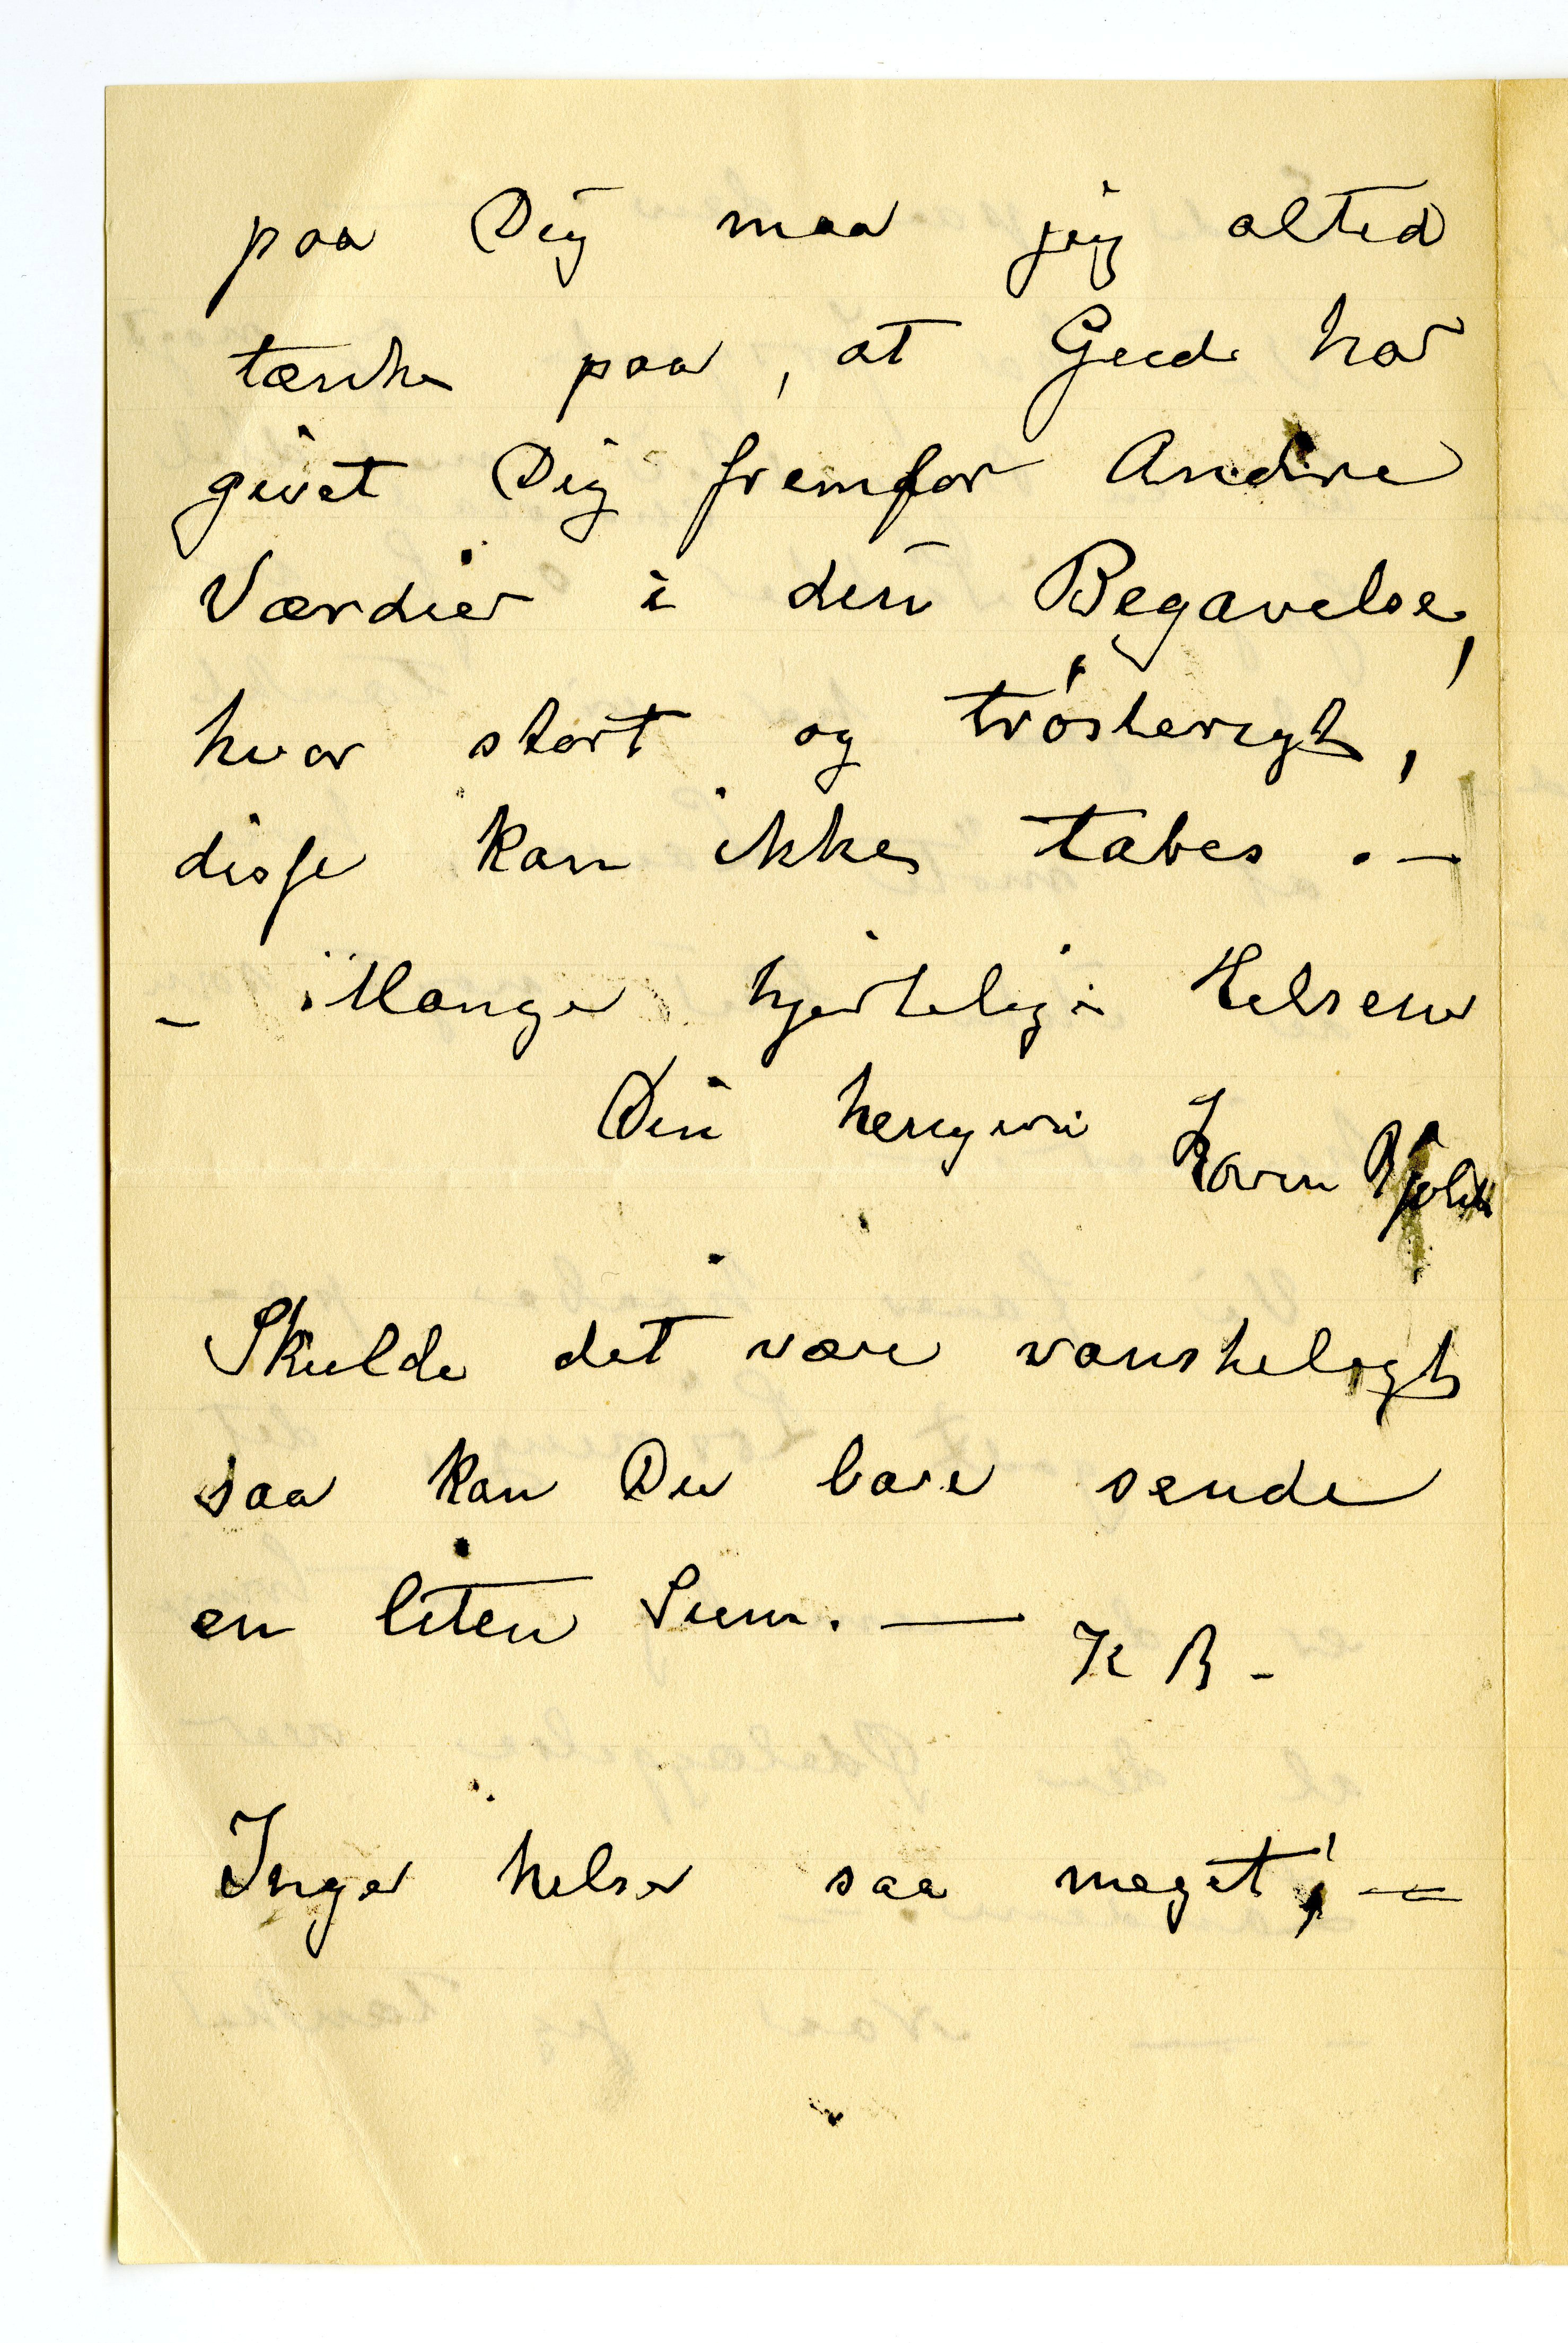 paa Dig maa jeg altid
tænke paa, at Gud har
givet Dig fremfor Andre
Værdier i din Begavelse,
hvor stort og trøsterigt,
disse kan ikke tabes. —
– Mange hjertelige Helsener
Din hengivne Karen Bjølstad
Skulde det være vanskeligt
saa kan Du bare sende
en liten Sum. — K B –
Inger helser saa meget! —